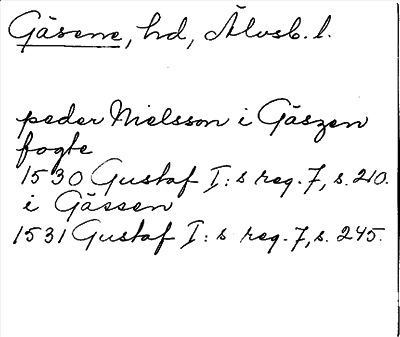 Gäsene, hd, Älvsb. l.
peder Nielsson i Gäszen
fogte
1530 Gustaf I:s reg. 7, s. 210.
i Gässen
1531 Gustaf I:s reg. 7, s. 245.